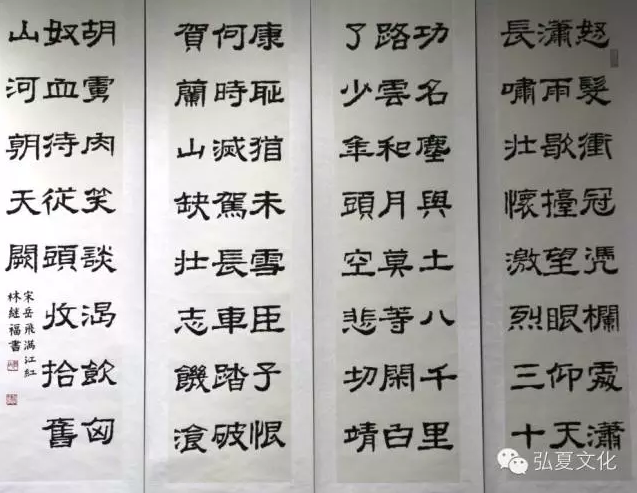 怒髮衝冠凴欄處瀟
瀟雨歇擡望眼仰天
長嘯壯懷激烈三十
功名塵與土八千里
路雲和月莫等閑白
了少年頭空悲切靖
康耻猶未雪臣子恨
何時滅駕長車踏破
賀蘭山缺壯志饑湌
胡虜肉笑談渴飲匈
奴血待從頭收拾舊
山河朝天闕
宋岳飛满江紅
林继福書
弘夏文化